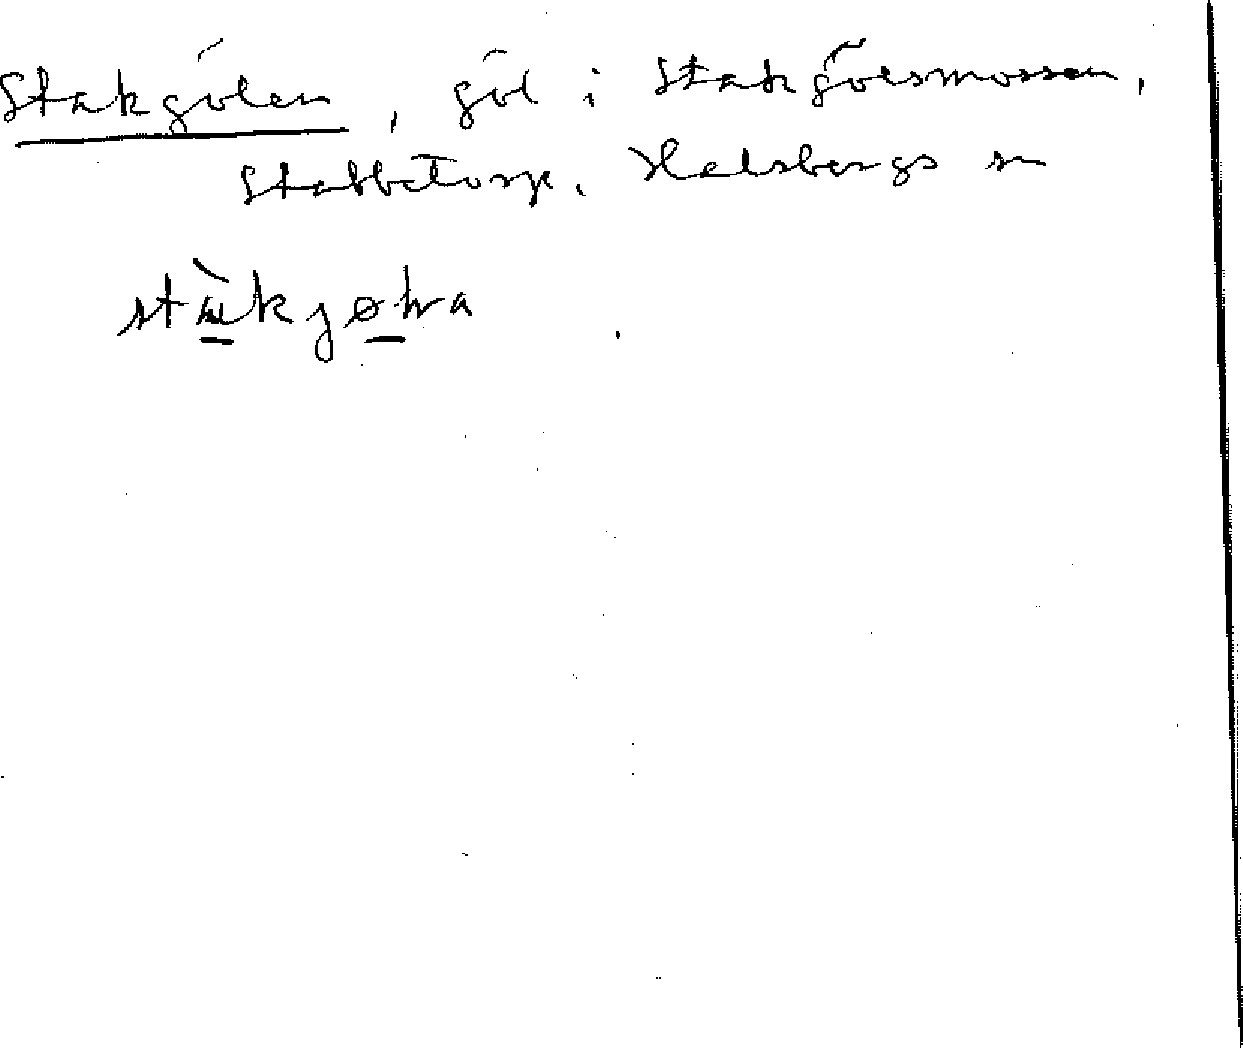 Stakgölen, göl i Stakgölsmossen,
Stabbetorp. Halsbergs sn
stàkgøłra